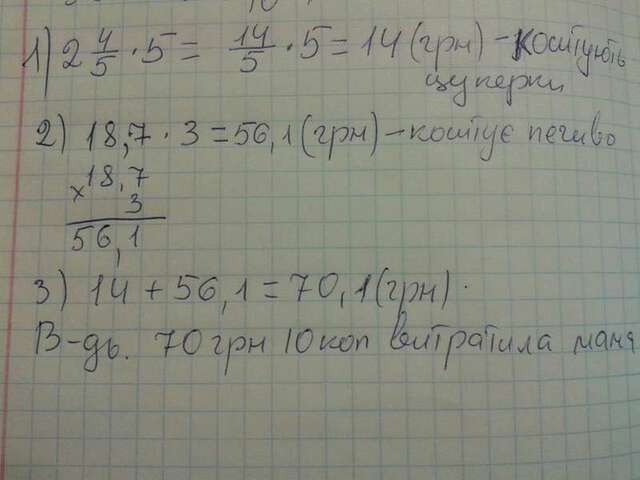 1) 2 4/5 · 5 = 14/5 · 5 = 14 (грн) - коштують
цукерки
2) 18,7 · 3 = 56,1 (грн) - коштує печиво
× 18,7
3
56,1
3) 14 + 56,1 = 70,1 (грн).
В-дь. 70 грн 10 коп витратила мама